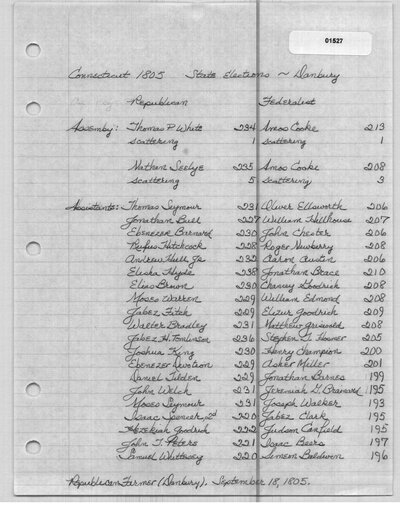 01527
Connecticut 1805 State Elections ~ Danbury
Republican Federalist
Assembly: Thomas P White 234 Amos Cooke 213
scattering 1 scattering 1
Nathan Seelye 235 Amos Cooke 208
scattering 5 scattering 3
Assistants: Thomas Seymour 231 Oliver Ellsworth 206
Jonathan Bull 227 William Hillhouse 207
Ebenezer Barnard 230 John Chester 206
Rufus Hitchcock 228 Roger Newberry 208
Andrew Hull Jr 232 Aaron Austin 206
Elisha Hyde 238 Jonathan Brace 210
Elias Brown 230 Chancy Goodrich 208
Moses Warren 229 William Edmond 208
Jabez Fitch 229 Elizur Goodrich 209
Walter Bradley 231 Matthew Griswold 208
Jabez H. Tomlinson 236 Stephen T. Hosmer 205
Joshua King 230 Henry Champion 200
Ebenezer Devotion 229 Asher Miller 201
Daniel Tilden 229 Jonathan Barnes 199
John Welch 231 Jeremiah G. Brainard 195
Moses Seymour 231 Joseph Walker 193
Isaac Spencer 2d 220 Jabez Clark 195
Hezekiah Godrich 222 Judson Canfield 195
John T. Peters 221 Isaac Beers 197
Samuel Whittlesey 220 Simeon Baldwin 196
Republican Farmer (Danbury). September 18, 1805.